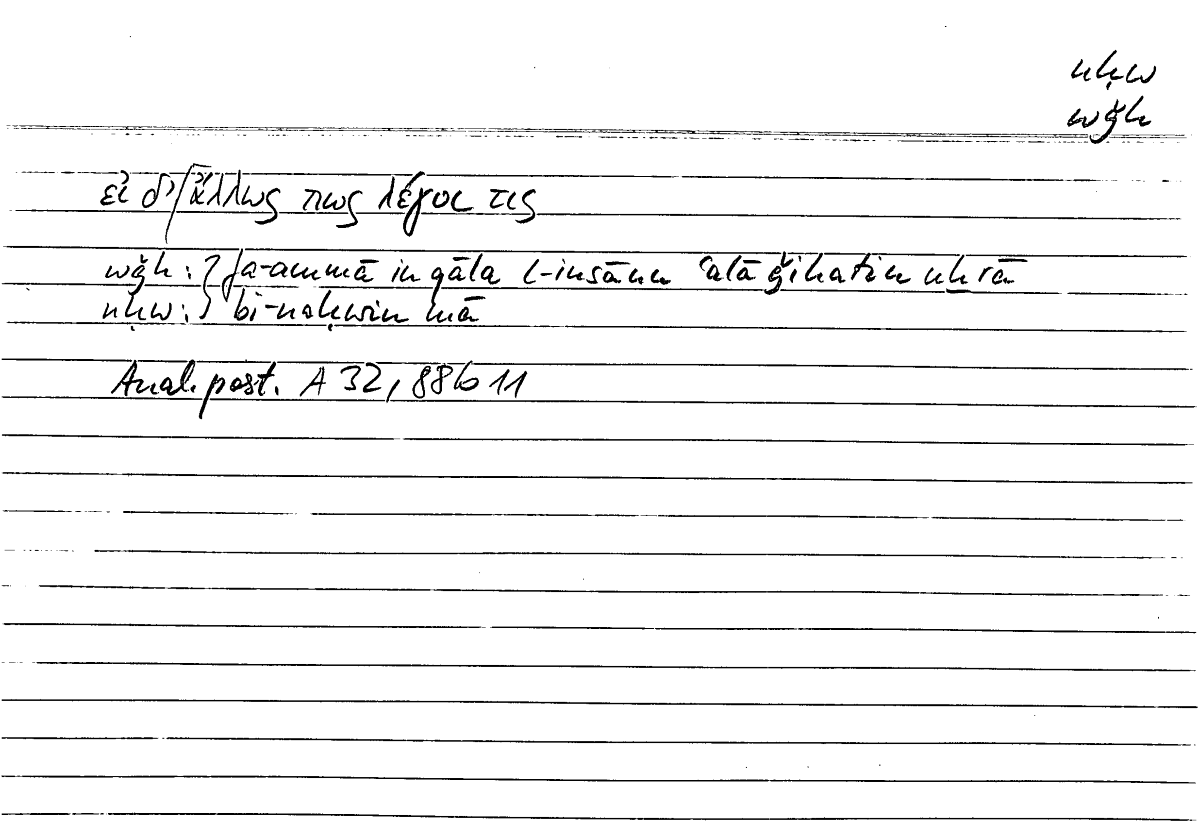 nḥw
wǧh
εἰ δ’ ἄλλως πως λέγοι τις
wǧh : } fa-ammā in qāla l-insānu ʿalā ǧihatin uḫrā
nḥw : } bi-naḥwin mā
Anal. post. A 32, 88b11